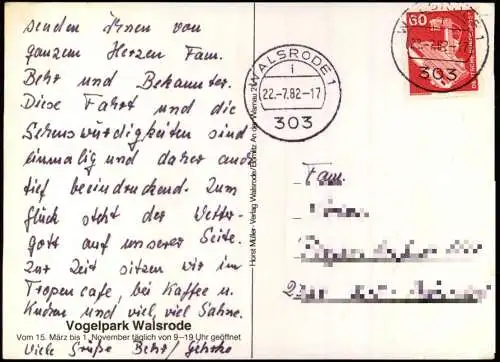 senden Ihnen von
ganzem Herzen Fam.
Behr und Bekannter.
Diese Fahrt und die
Sehenswürdigkeiten sind
einmalig und daher auch
tief beeindruckend. Zum
Glück steht der Wetter-
gott auf unserer Seite.
Zur Zeit sitzen wir im
Tropencafe, bei Kaffee u.
Kuchen und viel, viel Sahne.
Vogelpark Walsrode
Vom 15. März bis 1. November täglich von 9–19 Uhr geöffnet
Viele Grüße Behr/
Horst Müller-Verlag Walsrode
WALSRODE 1
i
22.-7.82-17
303
WALSRODE 1
22.-7.82-17
303
60
DEUTSCHE BUNDESPOST
Fam.